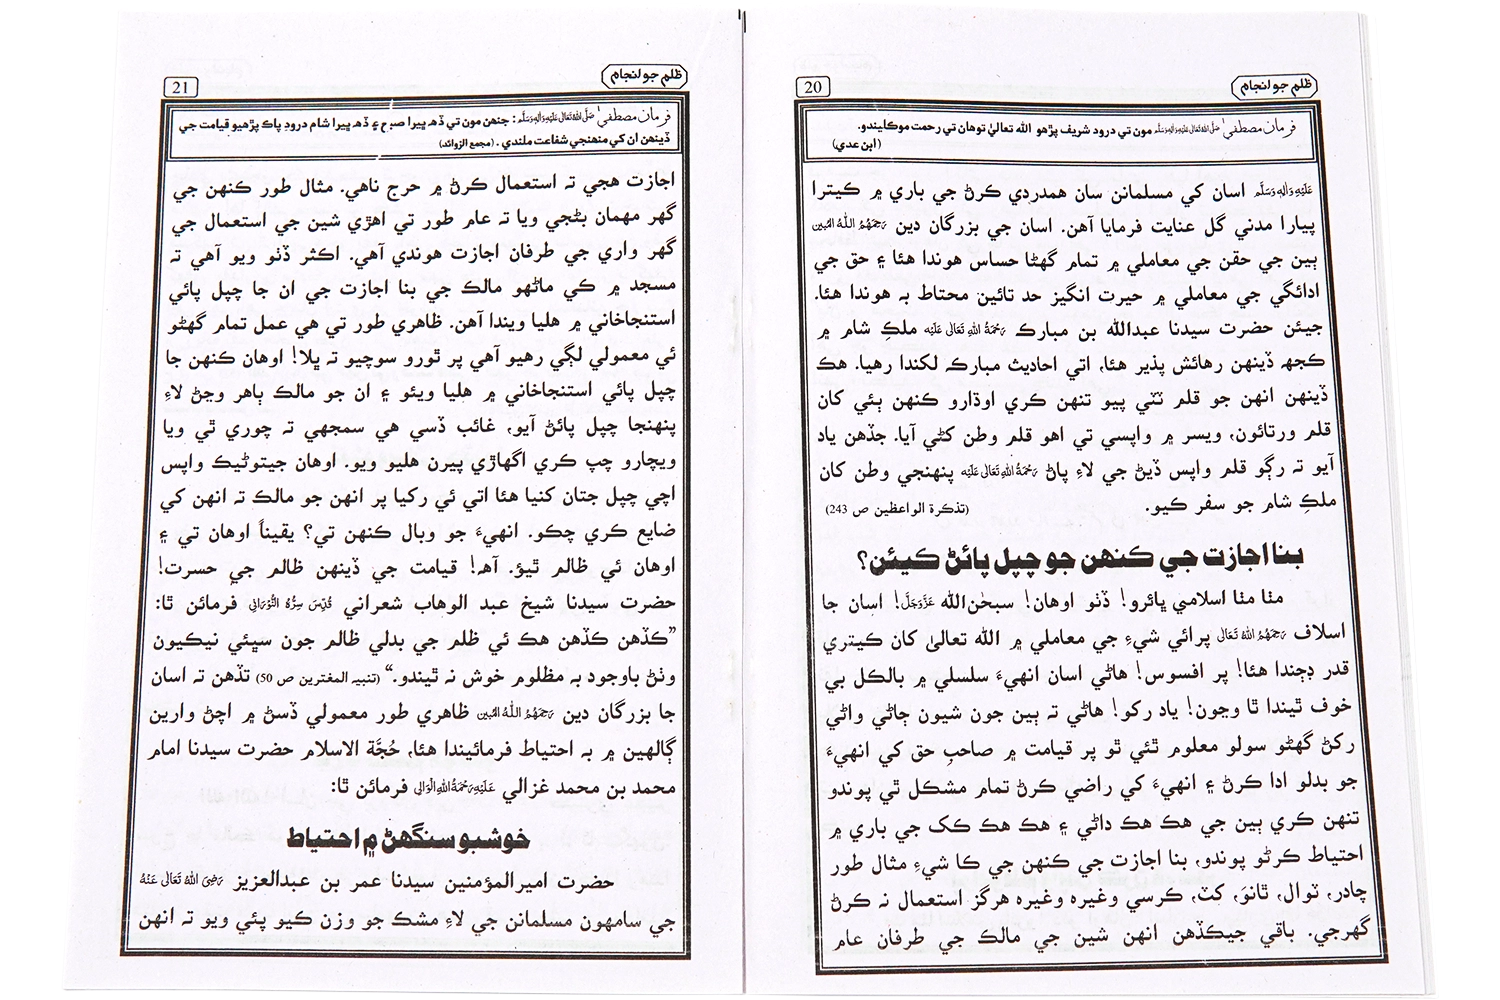 ظلم جو انجام
20
فرمانِ مصطفيٰ صَلَّی اللہُ تَعَالٰی عَلَیْہِ وَاٰلِہٖ وَسَلَّم مون تي درود شريف پڙهو الله تعاليٰ توهان تي رحمت موڪليندو.
(ابن عدي)
عَلَیْہِ وَاٰلِہٖ وَسَلَّم اسان کي مسلمانن سان همدردي ڪرڻ جي باري ۾ ڪيترا
پيارا مدني گل عنايت فرمايا آهن. اسان جي بزرگان دين رَحِمَہُمُ اللہُ الْمُبِیْن
ٻين جي حقن جي معاملي ۾ تمام گهڻا حساس هوندا هئا ۽ حق جي
ادائگي جي معاملي ۾ حيرت انگيز حد تائين محتاط به هوندا هئا.
جيئن حضرت سيدنا عبدالله بن مبارڪ رَحْمَۃُ اللہِ تَعَالٰی عَلَیْہ ملڪِ شام ۾
ڪجهہ ڏينهن رهائش پذير هئا، اتي احاديث مبارڪہ لکندا رهيا. هڪ
ڏينهن انهن جو قلم ٽٽي پيو تنهن ڪري اوڌارو ڪنهن ٻئي کان
قلم ورتائون، ويسر ۾ واپسي تي اهو قلم وطن کڻي آيا. جڏهن ياد
آيو تہ رڳو قلم واپس ڏيڻ جي لاءِ پاڻ رَحْمَۃُ اللہِ تَعَالٰی عَلَیْہ پنهنجي وطن کان
ملڪِ شام جو سفر ڪيو. (تذڪرة الواعظين ص 243)
بنا اجازت جي ڪنهن جو چپل پائڻ ڪيئن؟
مٺا مٺا اسلامي ڀائرو! ڏٺو اوهان! سبحٰن الله عَزَّوَجَلَّ! اسان جا
اسلاف رَحِمَہُمُ اللہُ تَعَالٰی پرائي شيءِ جي معاملي ۾ الله تعاليٰ کان ڪيتري
قدر ڊڄندا هئا! پر افسوس! هاڻي اسان انهيءَ سلسلي ۾ بالڪل بي
خوف ٿيندا ٿا وڃون! ياد رکو! هاڻي تہ ٻين جون شيون ڄاڻي واڻي
رکڻ گهڻو سولو معلوم ٿئي ٿو پر قيامت ۾ صاحبِ حق کي انهيءَ
جو بدلو ادا ڪرڻ ۽ انهيءَ کي راضي ڪرڻ تمام مشڪل ٿي پوندو
تنهن ڪري ٻين جي هڪ هڪ داڻي ۽ هڪ هڪ ڪک جي باري ۾
احتياط ڪرڻو پوندو، بنا اجازت جي ڪنهن جي ڪا شيءِ مثال طور
چادر، ٽوال، ٿانوَ، کٽ، ڪرسي وغيره وغيره هرگز استعمال نہ ڪرڻ
گهرجي. باقي جيڪڏهن انهن شين جي مالڪ جي طرفان عام
ظلم جو انجام
21
فرمانِ مصطفيٰ صَلَّی اللہُ تَعَالٰی عَلَیْہِ وَاٰلِہٖ وَسَلَّم: جنهن مون تي ڏهہ ڀيرا صبح ۽ ڏهہ ڀيرا شام درودِ پاڪ پڙهيو قيامت جي
ڏينهن ان کي منهنجي شفاعت ملندي. (مجمع الزوائد)
اجازت هجي تہ استعمال ڪرڻ ۾ حرج ناهي. مثال طور ڪنهن جي
گهر مهمان بڻجي ويا تہ عام طور تي اهڙي شين جي استعمال جي
گهر واري جي طرفان اجازت هوندي آهي. اڪثر ڏٺو ويو آهي تہ
مسجد ۾ ڪي ماڻهو مالڪ جي بنا اجازت جي ان جا چپل پائي
استنجاخاني ۾ هليا ويندا آهن. ظاهري طور تي هي عمل تمام گهڻو
ئي معمولي لڳي رهيو آهي پر ٿورو سوچيو تہ ڀلا! اوهان ڪنهن جا
چپل پائي استنجاخاني ۾ هليا ويئو ۽ ان جو مالڪ ٻاهر وڃڻ لاءِ
پنهنجا چپل پائڻ آيو، غائب ڏسي هي سمجهي تہ چوري ٿي ويا
ويچارو چپ ڪري اگهاڙي پيرن هليو ويو. اوهان جيتوڻيڪ واپس
اچي چپل جتان کنيا هئا اتي ئي رکيا پر انهن جو مالڪ تہ انهن کي
ضايع ڪري چڪو. انهيءَ جو وبال ڪنهن تي؟ يقيناً اوهان تي ۽
اوهان ئي ظالم ٿيؤ. آهہ! قيامت جي ڏينهن ظالم جي حسرت!
حضرت سيدنا شيخ عبد الوهاب شعراني قُدِّسَ سِرُّہُ النُّوْرَانِی فرمائن ٿا:
”ڪڏهن ڪڏهن هڪ ئي ظلم جي بدلي ظالم جون سڀئي نيڪيون
وٺڻ باوجود بہ مظلوم خوش نہ ٿيندو.“ (تنبيہ المغترين ص 50) تڏهن تہ اسان
جا بزرگان دين رَحِمَہُمُ اللہُ الْمُبِیْن ظاهري طور معمولي ڏسڻ ۾ اچڻ وارين
ڳالهين ۾ بہ احتياط فرمائيندا هئا، حُجَّة الاسلام حضرت سيدنا امام
محمد بن محمد غزالي عَلَیْہِ رَحْمَۃُ اللہِ الْوَالِی فرمائن ٿا:
خوشبو سنگهڻ ۾ احتياط
حضرت اميرالمؤمنين سيدنا عمر بن عبدالعزيز رَضِیَ اللہُ تَعَالٰی عَنْہُ
جي سامهون مسلمانن جي لاءِ مشڪ جو وزن ڪيو پئي ويو تہ انهن